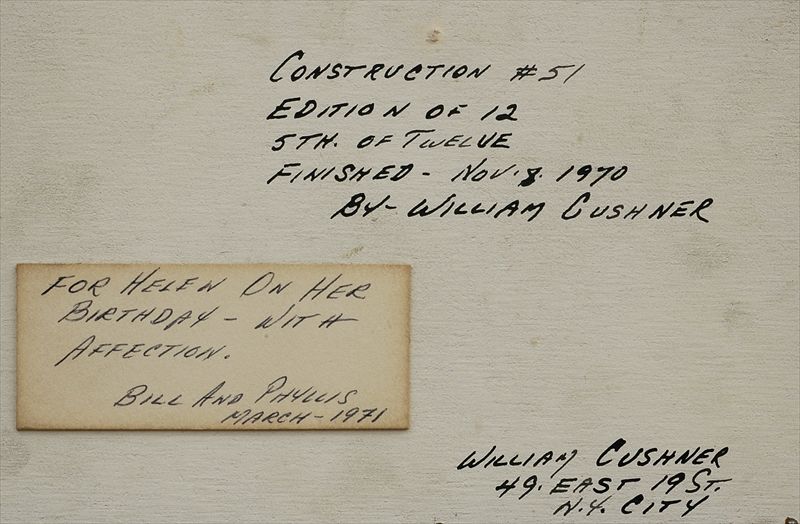 CONSTRUCTION #51
EDITION OF 12
5TH. OF TWELVE
FINISHED - NOV. 8. 1970
BY- WILLIAM CUSHNER
FOR HELEN ON HER
BIRTHDAY - WITH
AFFECTION.
BILL AND PHYLLIS
MARCH - 1971
WILLIAM CUSHNER
49. EAST 19 ST.
N.Y. CITY